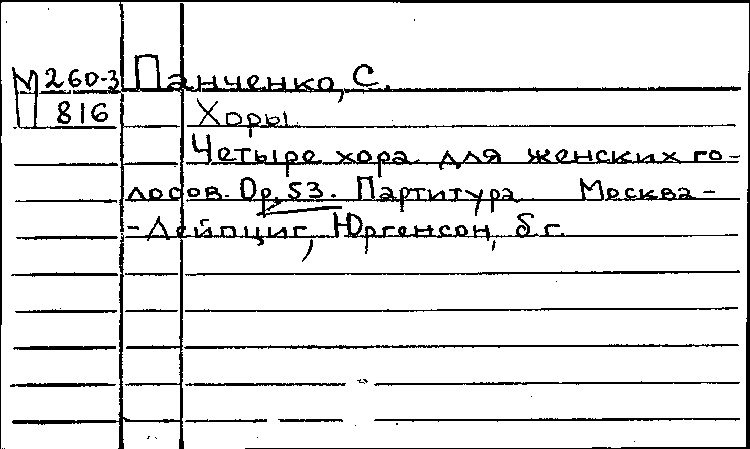 М260-3 Панченко, С.
П 816 Хоры
Четыре хора для женских го-
лосов. Ор. 53. Партитура Москва-
-Лейпциг, Юргенсон, б г.